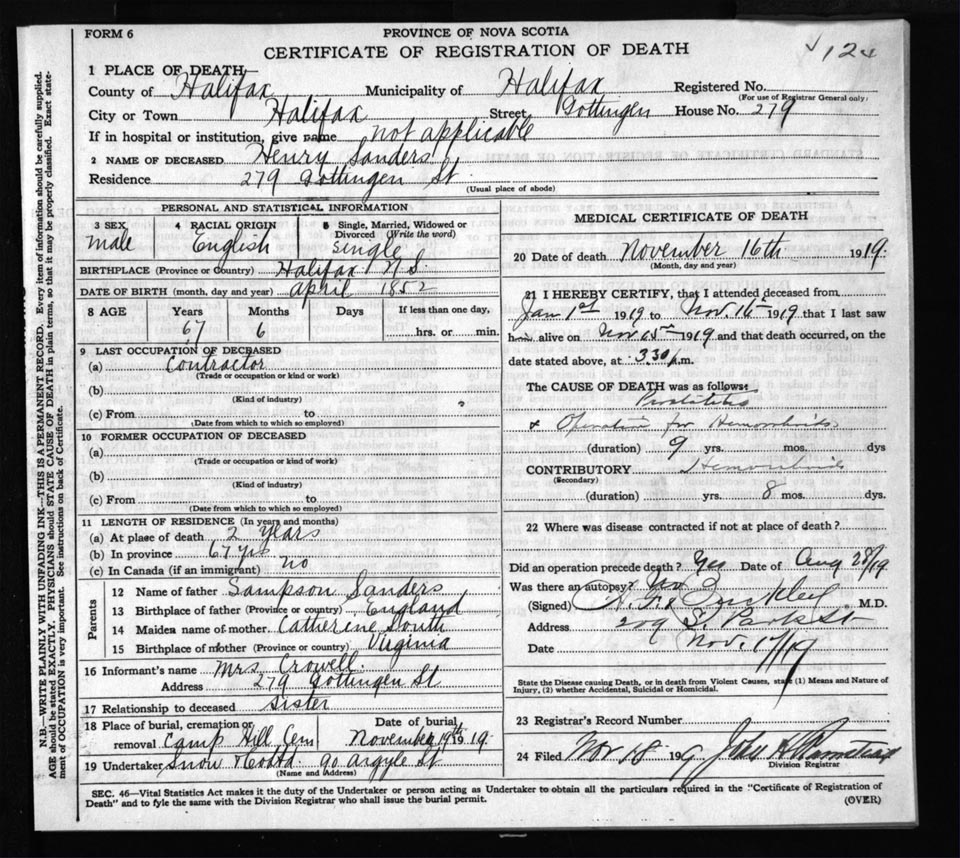 FORM 6
PROVINCE OF NOVA SCOTIA
CERTIFICATE OF REGISTRATION OF DEATH
124
1 PLACE OF DEATH
County of Halifax Municipality of Halifax Registered No.
(For use of Registrar General only)
City or Town Halifax Street Gottingen House No. 279
If in hospital or institution, give name not applicable
2 NAME OF DECEASED Henry Sanders
Residence 279 Gottingen St
(Usual place of abode)
PERSONAL AND STATISTICAL INFORMATION
3 SEX 4 RACIAL ORIGIN 5 Single, Married, Widowed or Divorced (Write the word)
male English single
BIRTHPLACE (Province or Country) Halifax N S.
DATE OF BIRTH (month, day and year) April 1852
8 AGE Years Months Days If less than one day,
67 6 hrs. or min.
9 LAST OCCUPATION OF DECEASED
(a) Contractor
(Trade or occupation or kind or work)
(b)
(Kind of industry)
(c) From to
(Date from which to which so employed)
10 FORMER OCCUPATION OF DECEASED
(a)
(Trade or occupation or kind of work)
(b)
(Kind of industry)
(c) From to
(Date from which to which so employed)
11 LENGTH OF RESIDENCE (In years and months)
(a) At place of death 2 years
(b) In province 67 yrs
(c) In Canada (if an immigrant) no
Parents
12 Name of father Sampson Sanders
13 Birthplace of father (Province or country) England
14 Maiden name of mother Catherine South
15 Birthplace of mother (Province or country) Virginia
16 Informant's name Mrs Crowell
Address 279 Gottingen St
17 Relationship to deceased sister
18 Place of burial, cremation or removal Camp Hill Cem Date of burial November 19th 1919.
19 Undertaker Snow & Co Ltd. 90 Argyle St
(Name and Address)
MEDICAL CERTIFICATE OF DEATH
20 Date of death November 16th 1919.
(Month, day and year)
21 I HEREBY CERTIFY, that I attended deceased from
Jan 1st 1919 to Nov. 16th 1919 that I last saw
him alive on Nov 15th 1919 and that death occurred, on the
date stated above, at 3.30 p.m.
The CAUSE OF DEATH was as follows:
Prostatitis
& Operation for Hemorrhoids
(duration) 9 yrs. mos. dys
CONTRIBUTORY Hemorrhoids
(Secondary)
(duration) yrs. 8 mos. dys.
22 Where was disease contracted if not at place of death?
Did an operation precede death? Yes Date of Aug 28/19
Was there an autopsy? No
(Signed) Buckley M.D.
Address 209 S. Park St
Date Nov. 17/19
State the Disease causing Death, or in death from Violent Causes, state (1) Means and Nature of Injury, (2) whether Accidental, Suicidal or Homicidal.
23 Registrar's Record Number
24 Filed Nov 18 1919 John
Division Registrar
SEC. 46—Vital Statistics Act makes it the duty of the Undertaker or person acting as Undertaker to obtain all the particulars required in the "Certificate of Registration of
Death" and to fyle the same with the Division Registrar who shall issue the burial permit.
(OVER)
N.B.—WRITE PLAINLY WITH UNFADING INK—THIS IS A PERMANENT RECORD. Every item of information should be carefully supplied.
AGE should be stated EXACTLY. PHYSICIANS should STATE CAUSE OF DEATH in plain terms, so that it may be properly classified. Exact statement of OCCUPATION is very important. See instructions on back of Certificate.